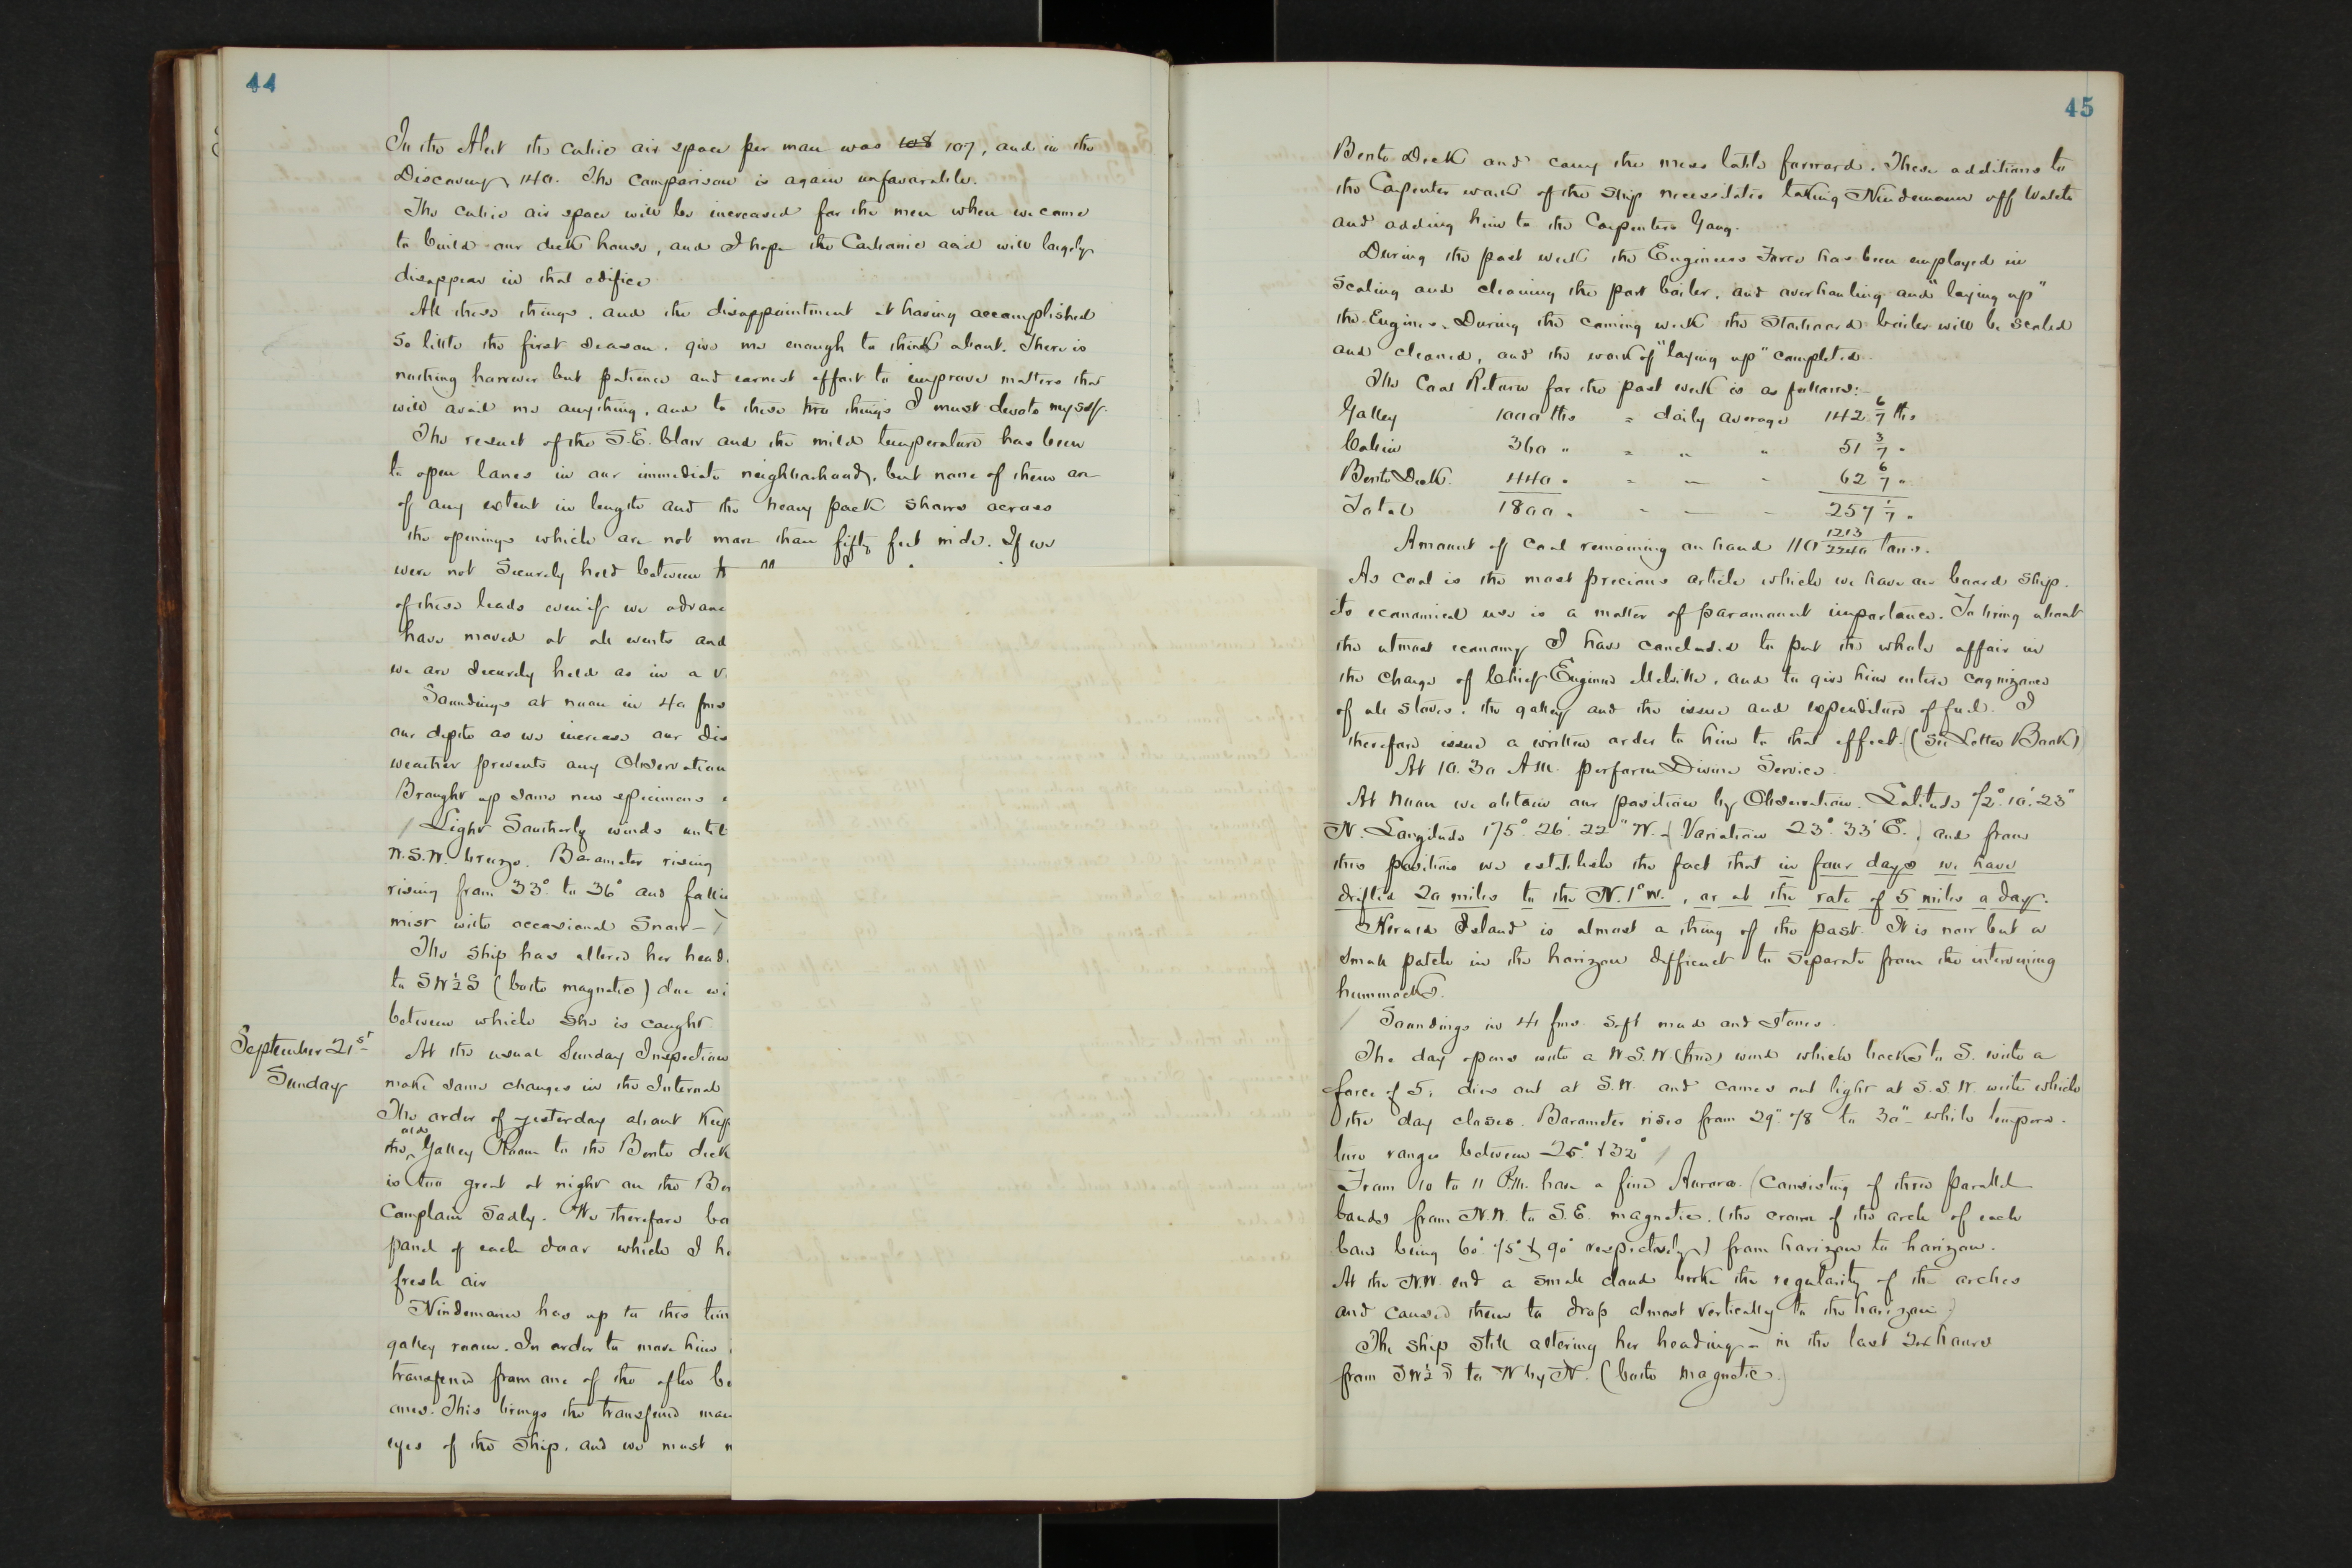 44
In the Alert the cubic air space per man was 108 107, and in the
Discovery 140. The comparison is again unfavorable.
The cubic air space will be increased for the men when we come
to build our deck house, and I hope the Carbonic acid will largely
disappear in that edifice
All these things, and the disappointment at having accomplished
so little the first season, give me enough to think about. There is
nothing however but patience and earnest effort to improve matters that
will avail me anything, and to these two things I must devote myself.
The result of the S.E. blow and the mild temperature has been
to open lanes in our immediate neighborhood, but none of them are
of any extent in length and the heavy pack shows across
the openings which are not more than fifty feet wide. If we
were not securely held between
of these leads even if we
have moved at all events and
we are securely held as in a
Soundings at noon in 40 fms
our depth as we increase our
weather prevents any
Brought up some new specimens
Light Southerly winds until
W.S.W. breeze. Barometer rising
rising from 33° to 36° and
mist with occasional Snow -
The ship has altered her
to SW½S (both magnetic) due
between which she is caught
September 21st
Sunday
At the usual Sunday Inspection
make some changes in the Internal
The order of yesterday about
the also Galley Room to the Berth deck
is too great at night on the
Complain sadly. We therefore
panel of each door which I
fresh air
Nindemann has up to this
galley room. In order to move him
transferred from one of the after
ones. This brings the transferred
eyes of the Ship, and we must
45
Berth Deck and carry the mess table forward. These additions to
the Carpenter work of the Ship necessitates taking Nindemann off Watch
and adding him to the Carpenters Gang.
During the past week the Engineers Force has been employed in
Scaling and cleaning the port boiler, and overhauling and "laying up"
the Engines. During the coming week the Starboard boiler will be scaled
and cleaned, and the work of "laying up" completed.
The Coal Return for the past week is as follows: -
Galley 1000 lbs = daily average 142 6/7 lbs
Cabin 360 " = " " 51 3/7 "
Berth Deck 440 " = " " 62 6/7 "
Total 1800 " " — " 257 1/7 "
Amount of Coal remaining on hand 110 1213/2240 tons.
As coal is the most precious article which we have on board ship,
its economical use is a matter of paramount importance. To bring about
the utmost economy I have concluded to put the whole affair in
the charge of Chief Engineer Melville, and to give him entire cognizance
of all stoves, the galley and the issue and expenditure of fuel. I
therefore issued a written order to him to that effect. (See Letter Book)
At 10.30 A.M. perform Divine Service.
At Noon we obtain our position by Observation. Latitude 72°. 10'. 23"
N. Longitude 175°. 26'. 22" W. - (Variation 23°. 33' E.) and from
this position we establish the fact that in four days we have
drifted 20 miles to the N. 1° W., or at the rate of 5 miles a day.
Herald Island is almost a thing of the past. It is now but a
small patch in the horizon difficult to separate from the intervening
hummocks.
Soundings in 41 fms. Soft mud and stones.
The day opens with a W.S.W. (true) wind which backs to S. with a
force of 5, dies out at S.W. and comes out light at S.S.W. with which
the day closes. Barometer rises from 29".78 to 30" - while tempera-
ture ranges between 25° & 32°
From 10 to 11 P.M. have a fine Aurora. (Consisting of three parallel
bands from N.W. to S.E. magnetic. (the crown of the arch of each
band being 60° 75° & 90° respectively) from horizon to horizon.
At the N.W. end a small cloud broke the regularity of the arches
and caused them to drop almost vertically to the horizon)
The ship still altering her heading - in the last 24 hours
from SW½S to W by N. (both magnetic.)